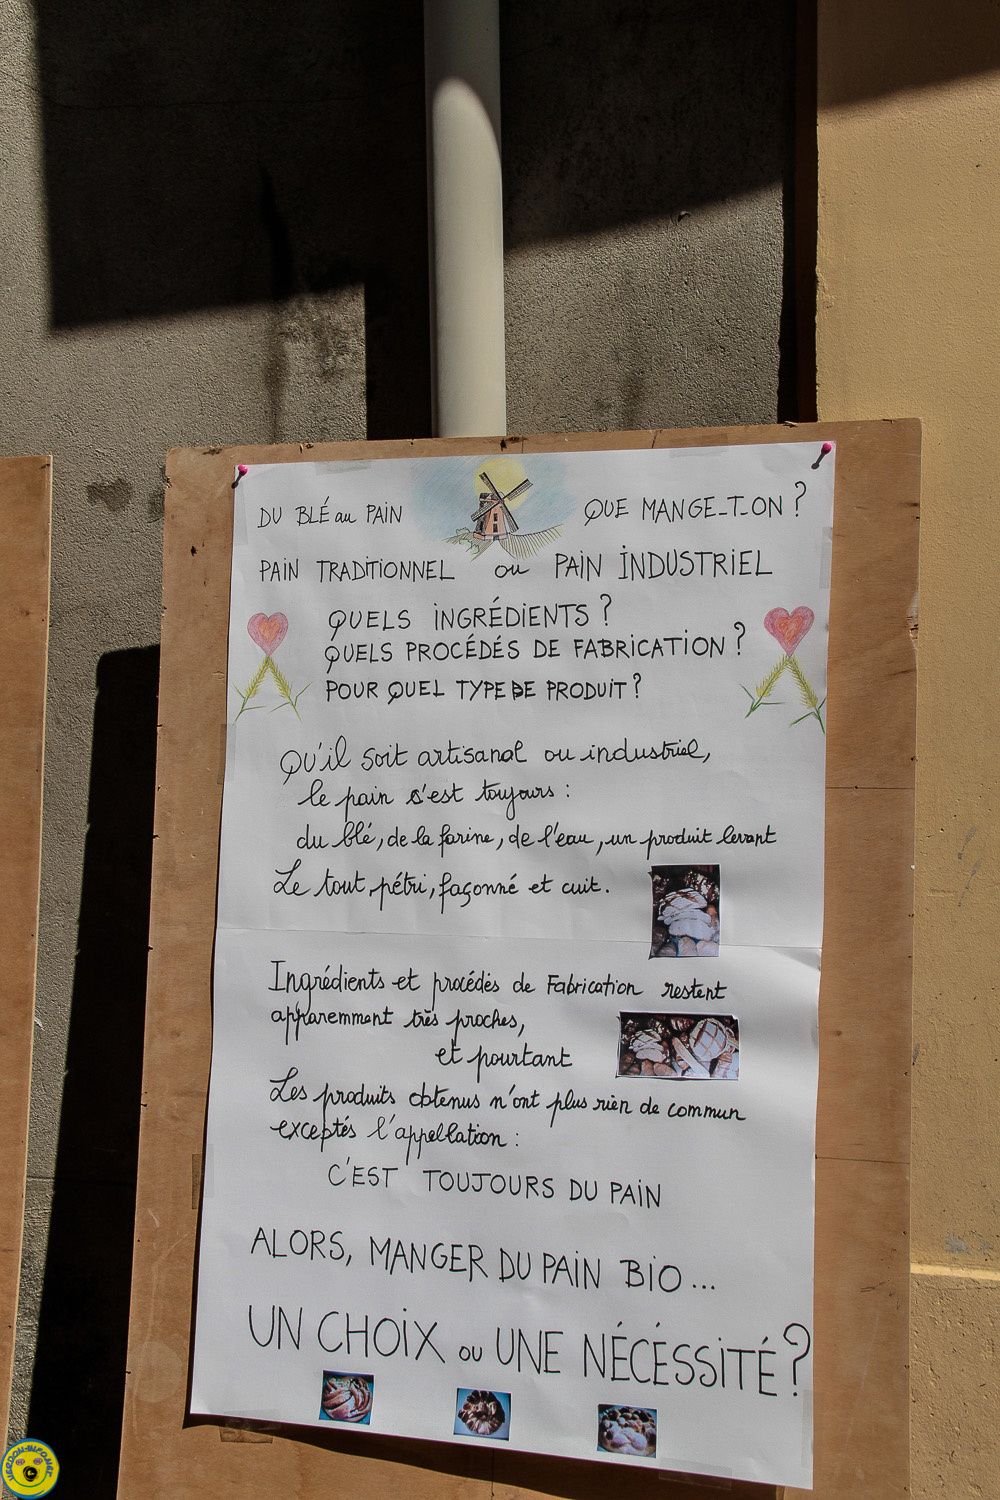 DU BLÉ au PAIN QUE MANGE-T-ON ?
PAIN TRADITIONNEL ou PAIN INDUSTRIEL
QUELS INGRÉDIENTS ?
QUELS PROCÉDÉS DE FABRICATION ?
POUR QUEL TYPE DE PRODUIT ?
Qu'il soit artisanal ou industriel,
le pain s'est toujours :
du blé, de la farine, de l'eau, un produit levant
Le tout pétri, façonné et cuit.
Ingrédients et procédés de Fabrication restent
apparemment très proches,
et pourtant
Les produits obtenus n'ont plus rien de commun
exceptés l'appellation :
C'EST TOUJOURS DU PAIN
ALORS, MANGER DU PAIN BIO...
UN CHOIX ou UNE NÉCÉSSITÉ ?
VERDON-INFO.NET